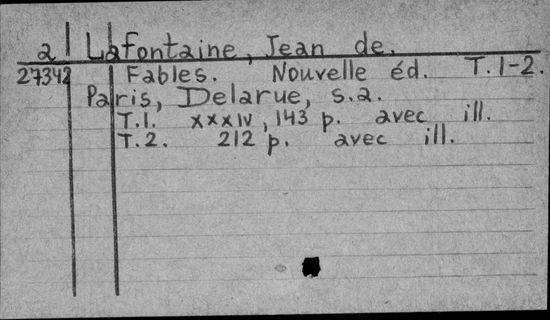 a Lafontaine, Jean de.
27342 Fables. Nouvelle éd. T. 1-2.
Paris, Delarue, s.a.
T.1. xxxiv, 143 p. avec ill.
T.2. 212 p. avec ill.